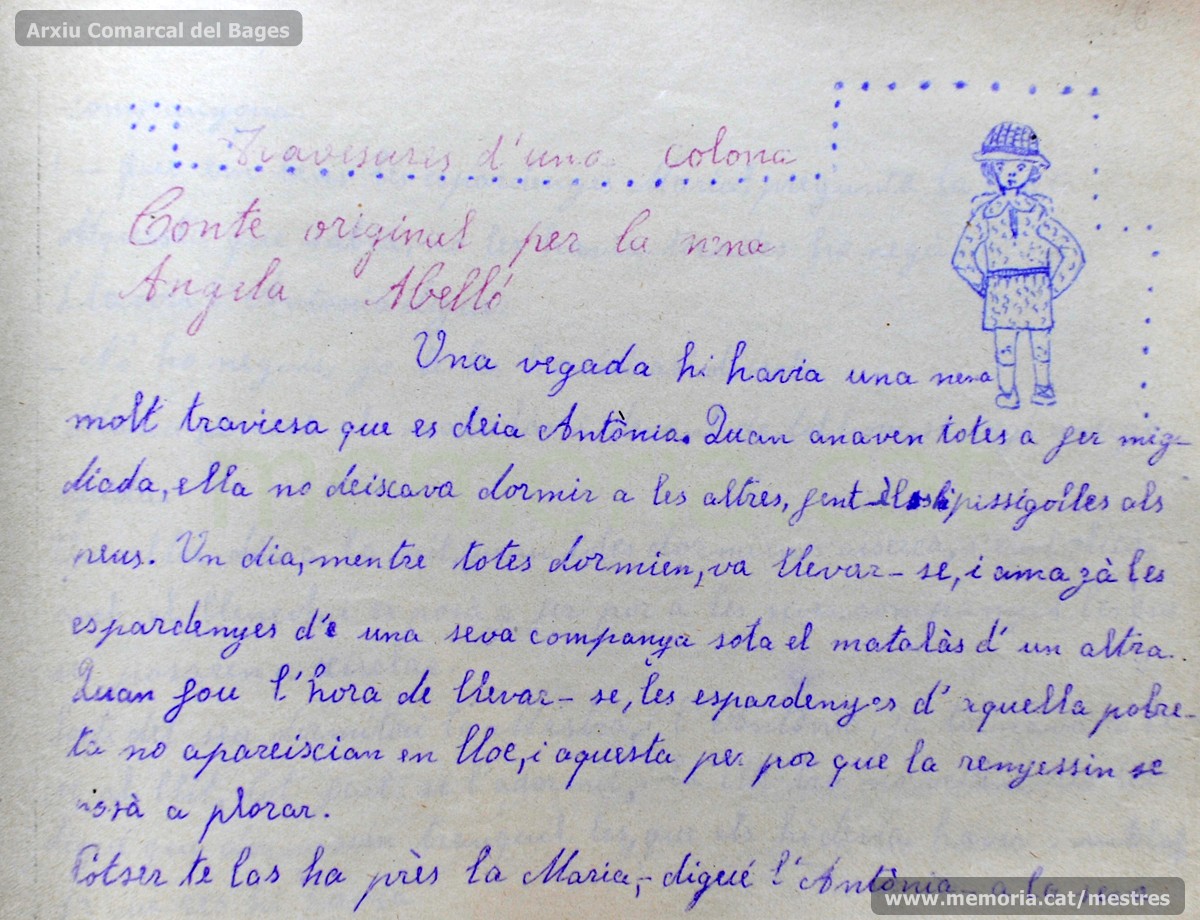 Arxiu Comarcal del Bages
Travesures d'una colona
Conte original per la nena
Angela Abelló
Una vegada hi havia una nena
molt traviesa que es deia Antònia. Quan anaven totes a fer mig-
diada, ella no deixava dormir a les altres, fent-els pessigolles als
peus. Un dia, mentre totes dormien, va llevar-se, i amagà les
espardenyes d'e una seva companya sota el matalàs d'un altra.
Quan fou l'hora de llevar-se, les espardenyes d'aquella pobre-
ta no apareiscian en lloc, i aquesta per por que la renyessin se
posà a plorar.
Potser te las ha près la Maria,- digué l'Antònia- a la seva
www.memoria.cat/mestres